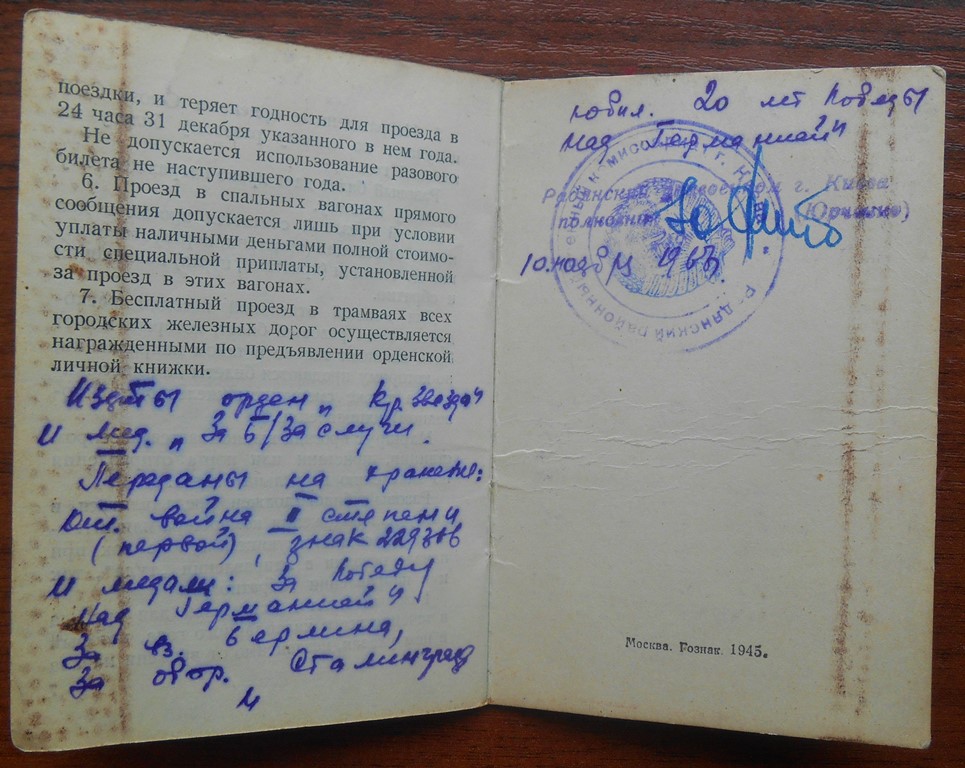 поездки, и теряет годность для проезда в
24 часа 31 декабря указанного в нем года.
Не допускается использование разового
билета не наступившего года.
6. Проезд в спальных вагонах прямого
сообщения допускается лишь при условии
уплаты наличными деньгами полной стоимо-
сти специальной приплаты, установленной
за проезд в этих вагонах.
7. Бесплатный проезд в трамваях всех
городских железных дорог осуществляется
награжденными по предъявлении орденской
личной книжки.
Изъяты орден „Кр. Звезда"
и мед. „За б/заслуги.
Переданы на хранение:
От. война II степени
(первой), знак 229306
и медали: За победу
над Германией"
За вз. Берлина,
За обор. Сталинград
и
юбил. 20 лет Победы
над Германией"
г. Киева
10 ноября 196
районный
Москва. Гознак. 1945.